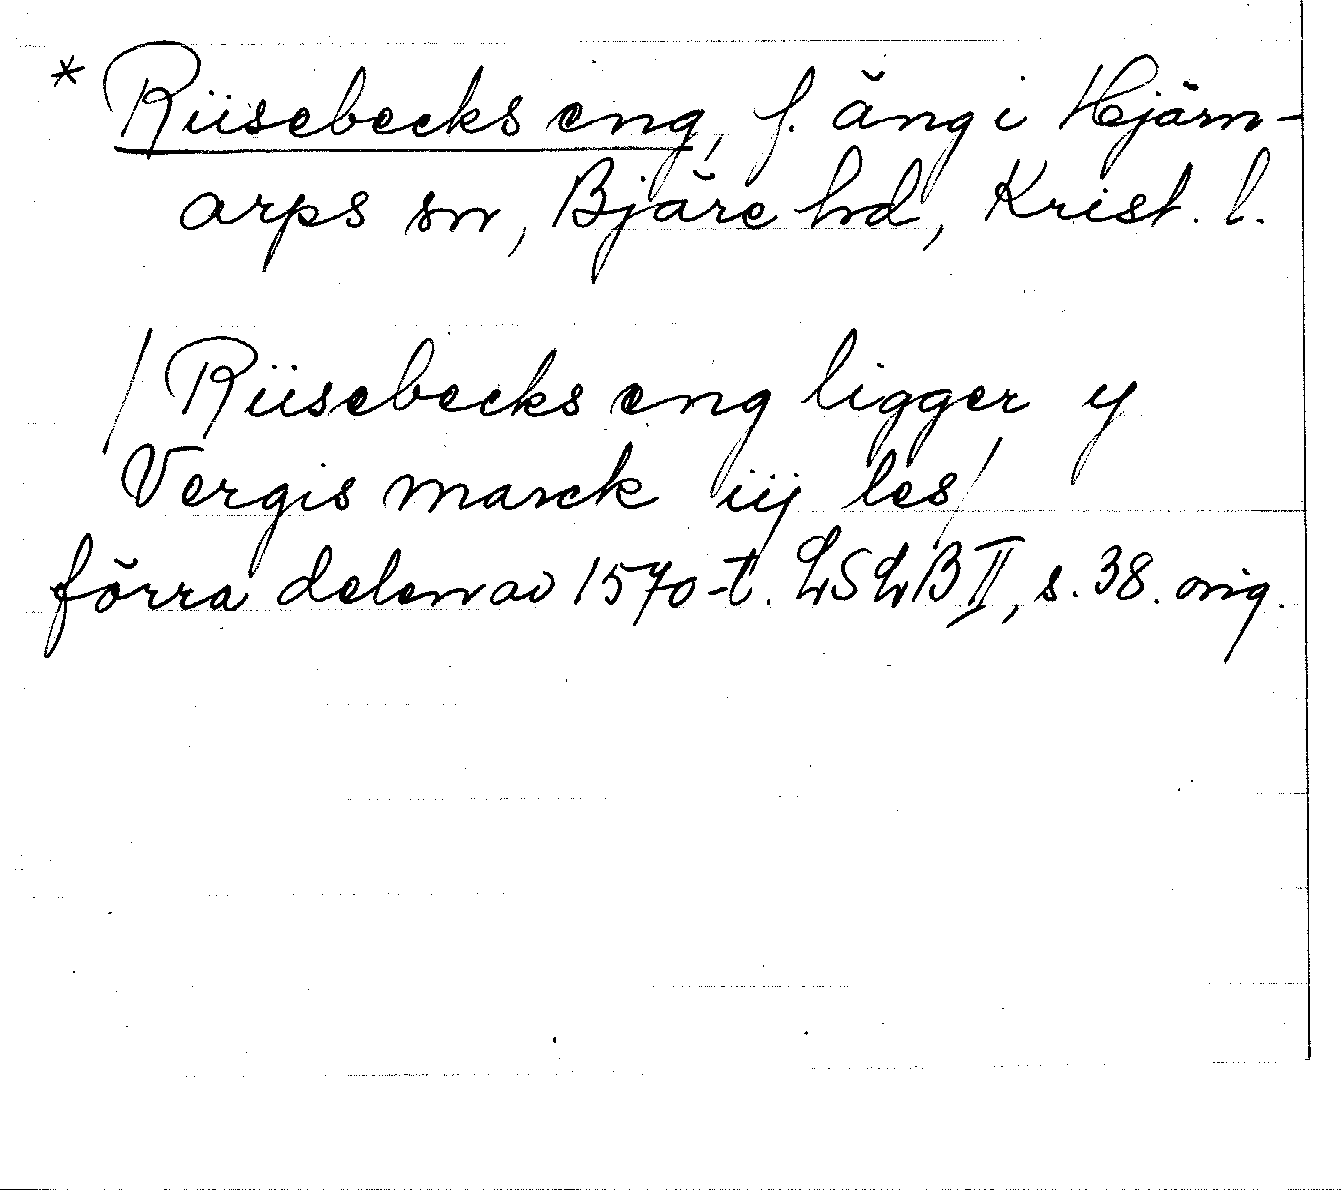 * Riisebecks eng, f. äng i Hjärn-
arps sn, Bjäre hd, Krist. l.
/Riisebecks eng ligger y
Vergis marck iij les/
förra delen av 1570-t. LSLB II, s. 38. orig.